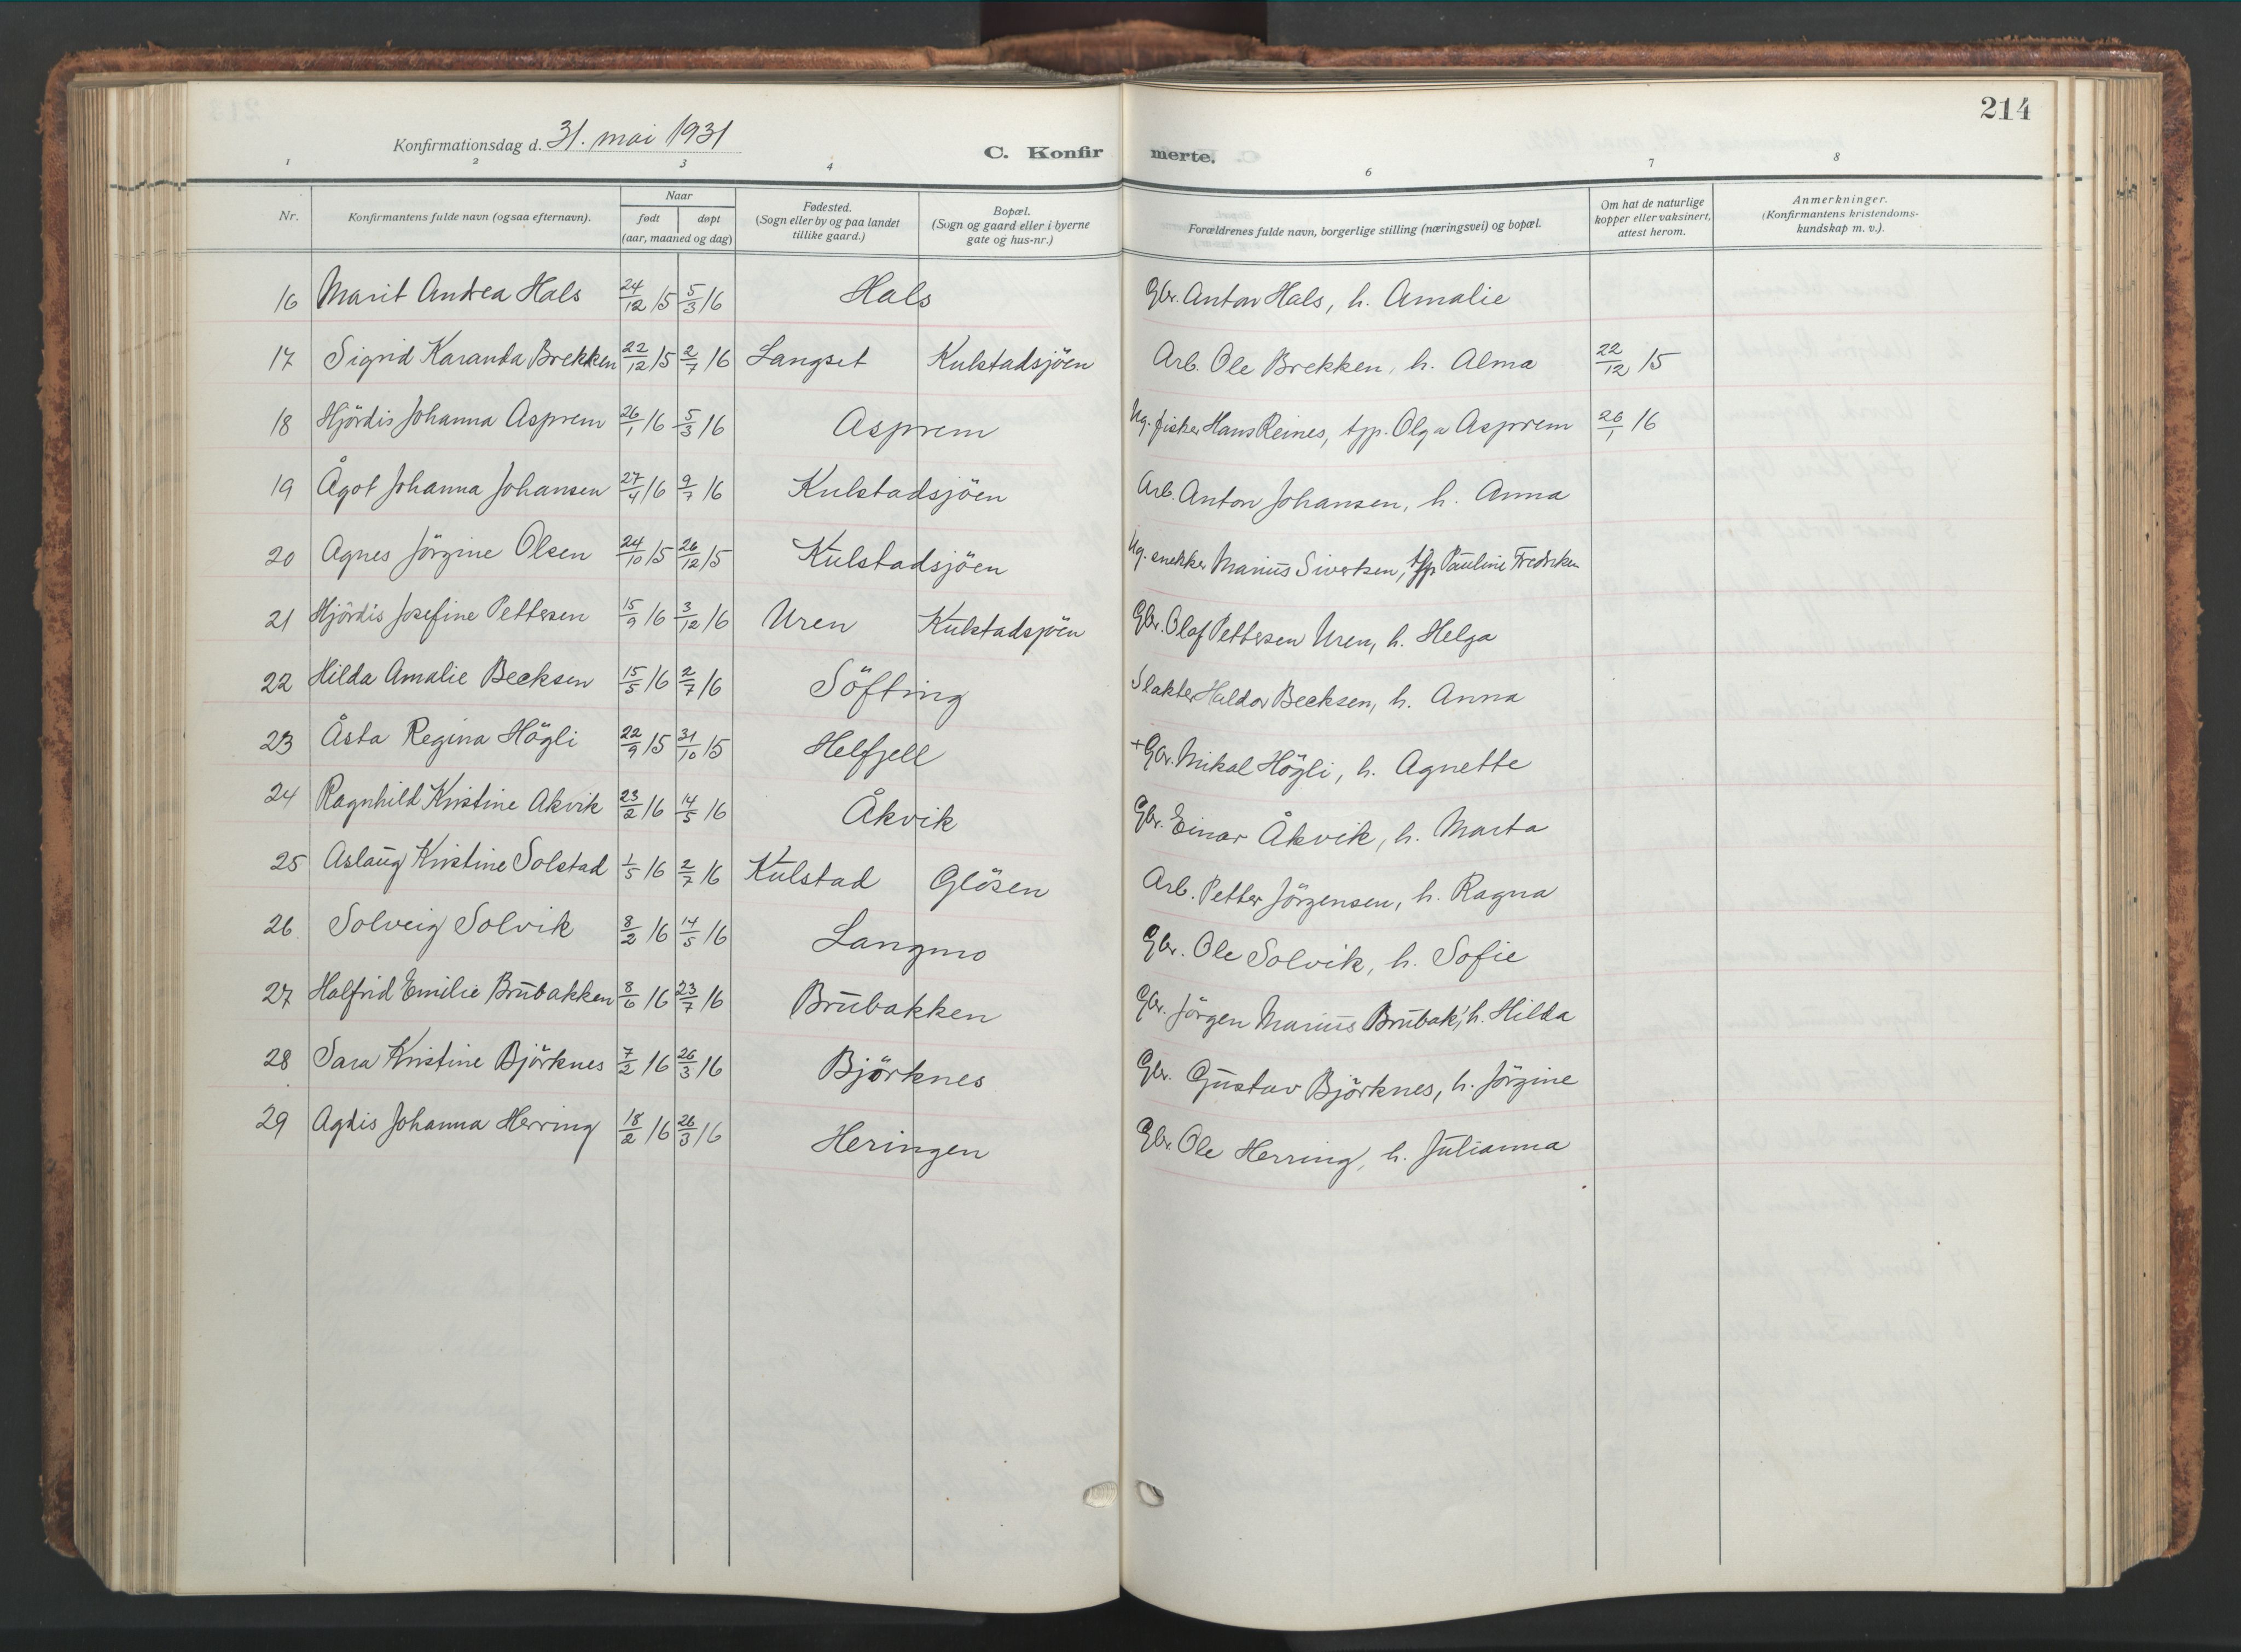 214
Konfirmationsdag d. 31. mai 1931
C. Konfirmerte.
1 2 3 4 6 7 8
Nr. Konfirmantens fulde navn (ogsaa efternavn). Naar født døpt (aar, maaned og dag) Fødested. (Sogn eller by og paa landet tillike gaard.) Bopæl. (Sogn og gaard eller i byerne gate og hus-nr.) Forældrenes fulde navn, borgerlige stilling (næringsvei) og bopæl. Om hat de naturlige kopper eller vaksinert, attest herom. Anmerkninger. (Konfirmantens kristendoms-kundskap m. v.).
16 Marit Andrea Hals 24/12 15 5/3 16 Hals Gbr. Anton Hals, h. Amalie
17 Sigrid Karanda Brekken 22/12 15 2/7 16 Langset Kulstadsjöen Arb. Ole Brekken, h. Alma 22/12 15
18 Hjördis Johanna Asprem 26/1 16 5/3 16 Asprem Ug. fisker Hans Reines, tjp. Olga Asprem 26/1 16
19 Ågot Johanna Johansen 27/4 16 9/7 16 Kulstadsjöen Arb. Anton Johansen, h. Anna
20 Agnes Jörgine Olsen 24/10 15 26/12 15 Kulstadsjöen Ug. snekker Marius Sivertsen, tjp. Pauline Fredriksen
21 Hjördis Josefine Pettersen 15/9 16 3/12 16 Uren Kulstadsjöen Gbr. Olaf Pettersen Uren, h. Helga
22 Hilda Amalie Becksen 15/5 16 2/7 16 Söfting Slakter Haldor Becksen, h. Anna
23 Åsta Regina Högli 22/9 15 31/10 15 Helfjell + Gbr. Mikal Högli, h. Agnette
24 Ragnhild Kristine Akvik 23/2 16 14/5 16 Åkvik Gbr. Einar Åkvik, h. Marta
25 Aslaug Kristine Solstad 1/5 16 2/7 16 Kulstad Glösen Arb. Petter Jörgensen, h. Ragna
26 Solveig Solvik 8/2 16 14/5 16 Langmo Gbr. Ole Solvik, h. Sofie
27 Halfrid Emilie Brubakken 8/6 16 23/7 16 Brubakken Gbr. Jörgen Marius Brubak', h. Hilda
28 Sara Kristine Björknes 7/2 16 26/3 16 Björknes Gbr. Gustav Björknes, h. Jörgine
29 Agdis Johanna Herring 18/2 16 26/3 16 Heringen Gbr. Ole Herring, h. Julianna